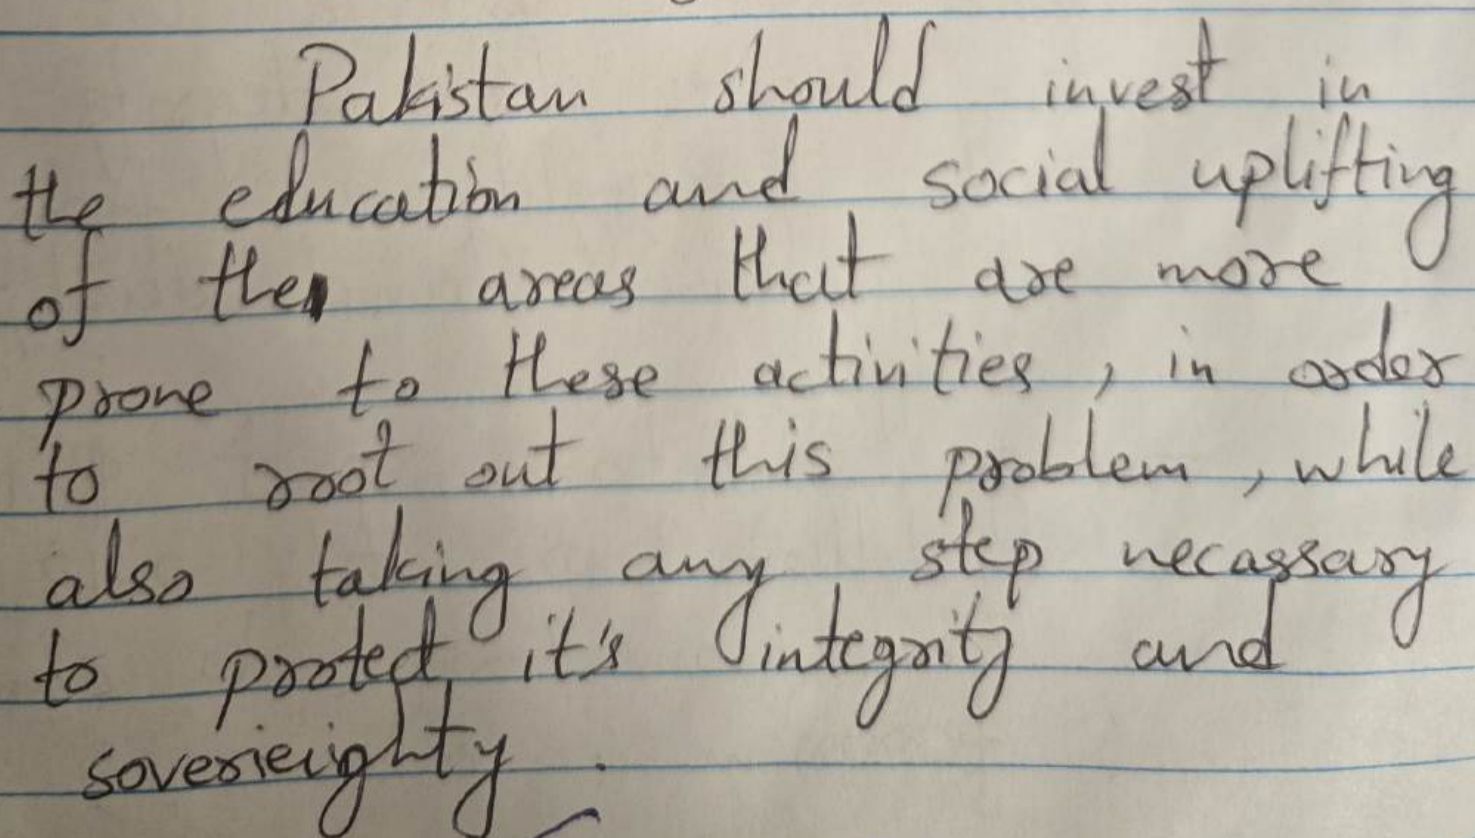 Pakistan should invest in
the education and social uplifting
of the areas that are more
prone to these activities, in order
to root out this problem, while
also taking any step necassary
to protect it's integrity and
soverieighty.